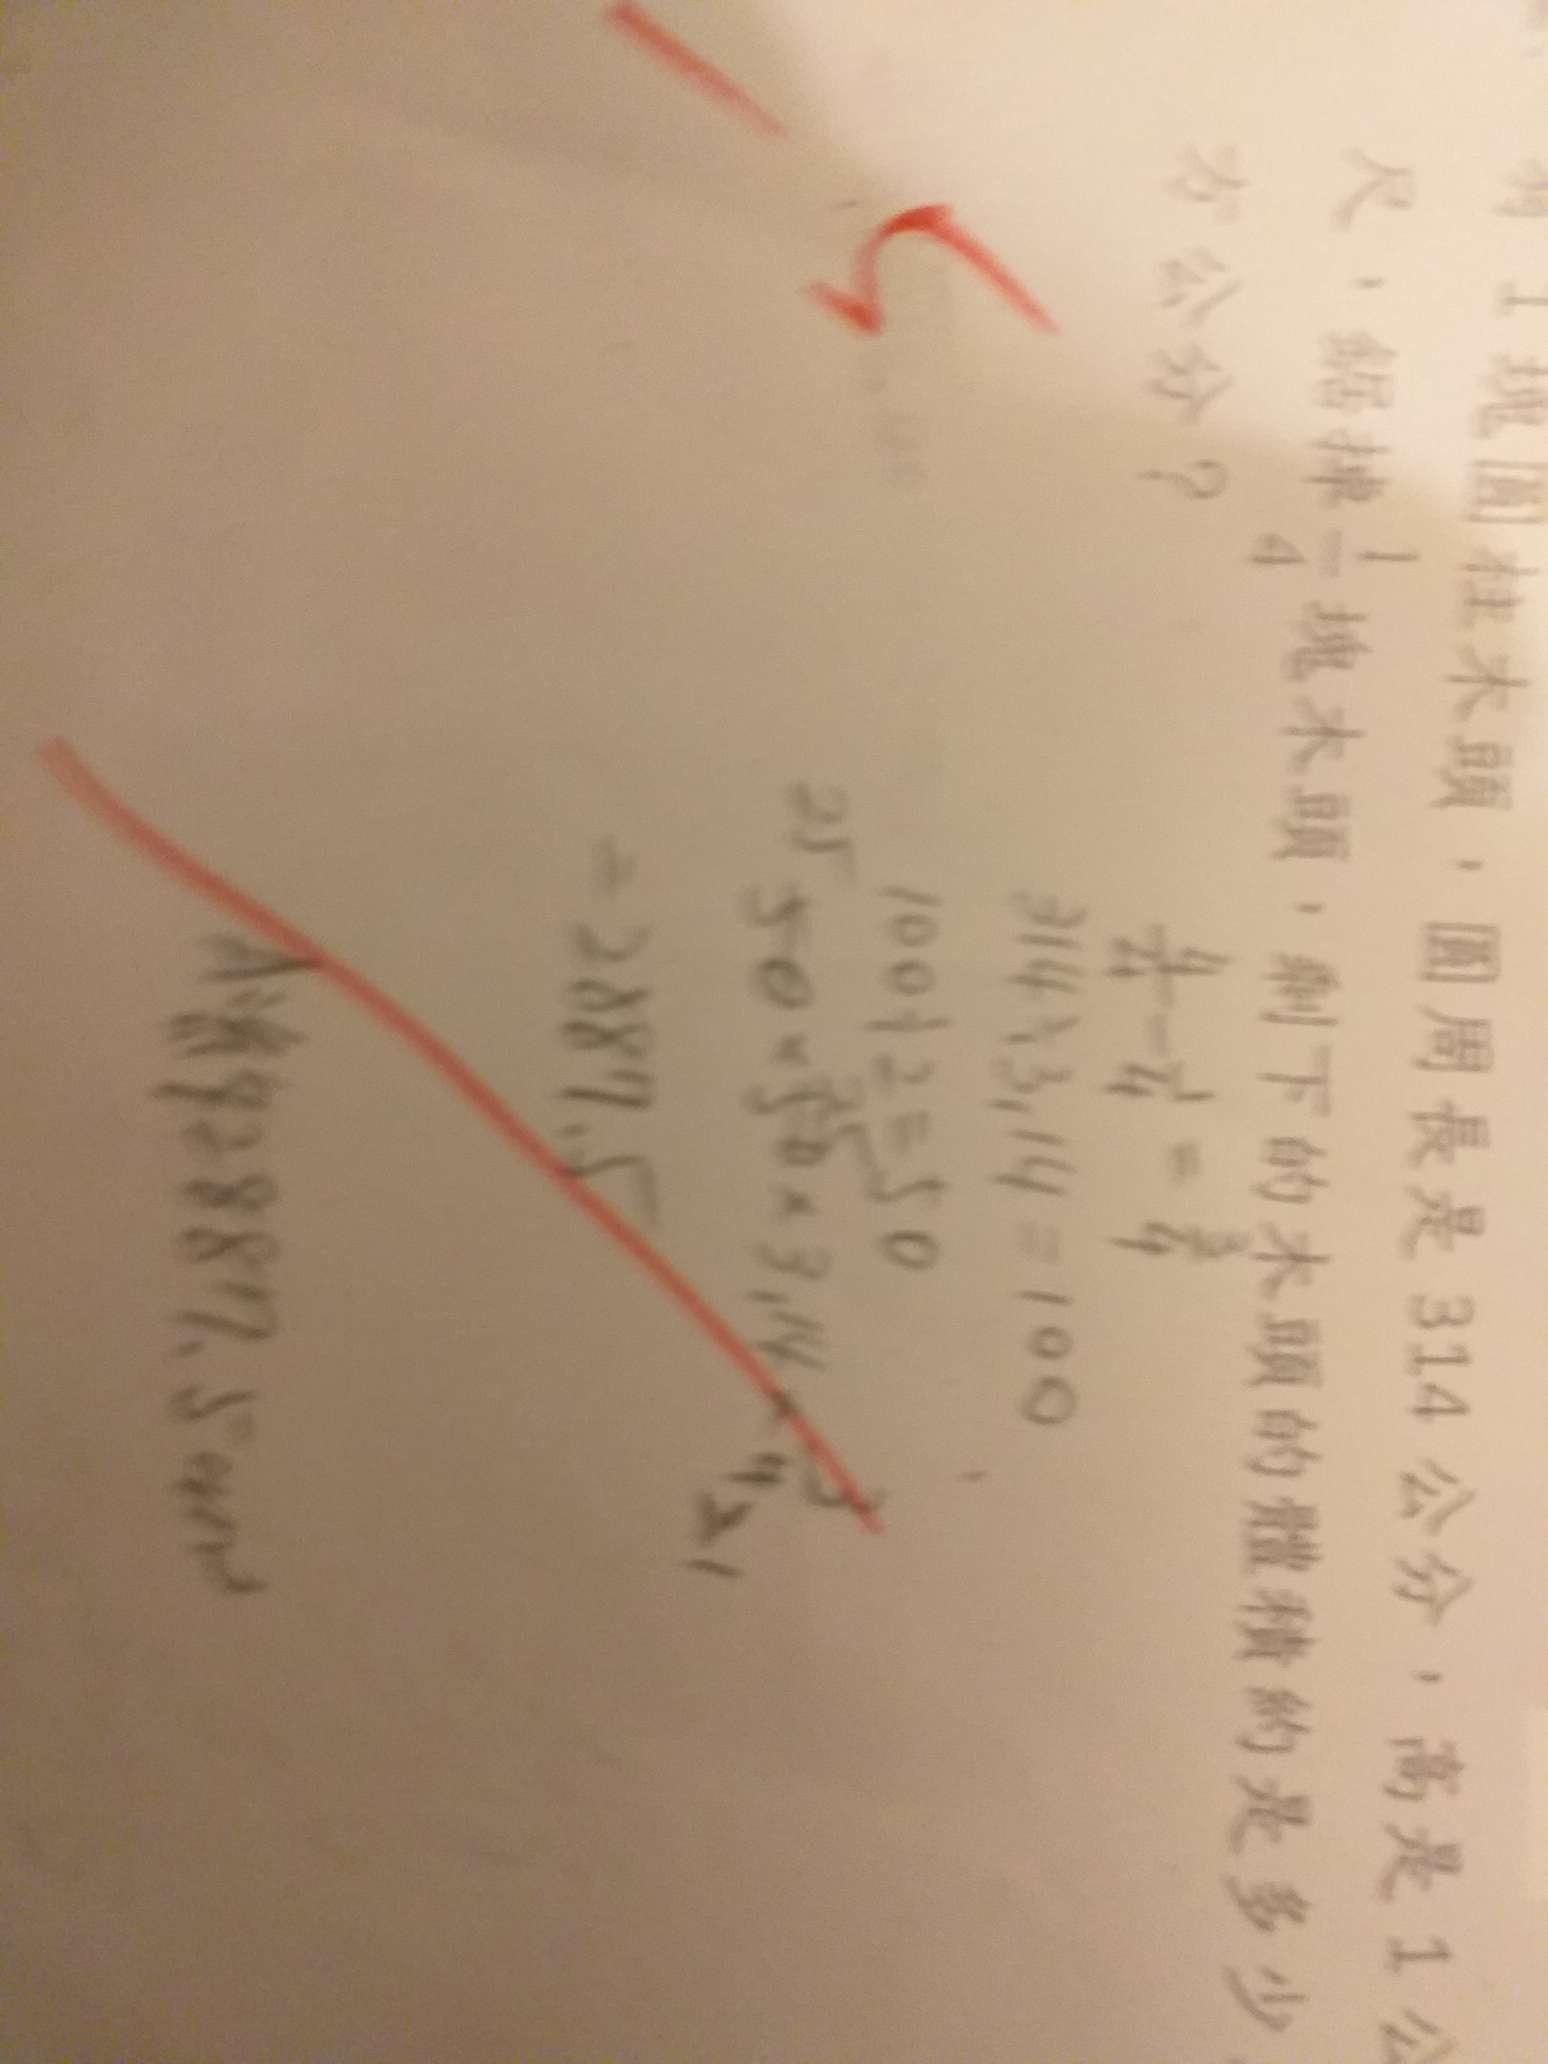 1塊圓柱木頭，圓周長是314公分，高是1公
尺，鋸掉1/4塊木頭，剩下的木頭的體積約是多少
方公分？
4/4-1/4=3/4
314÷3.14=100
100÷2=50
25
50×50×3.14×3/4
25
21
=2887.5
A:約2887.5